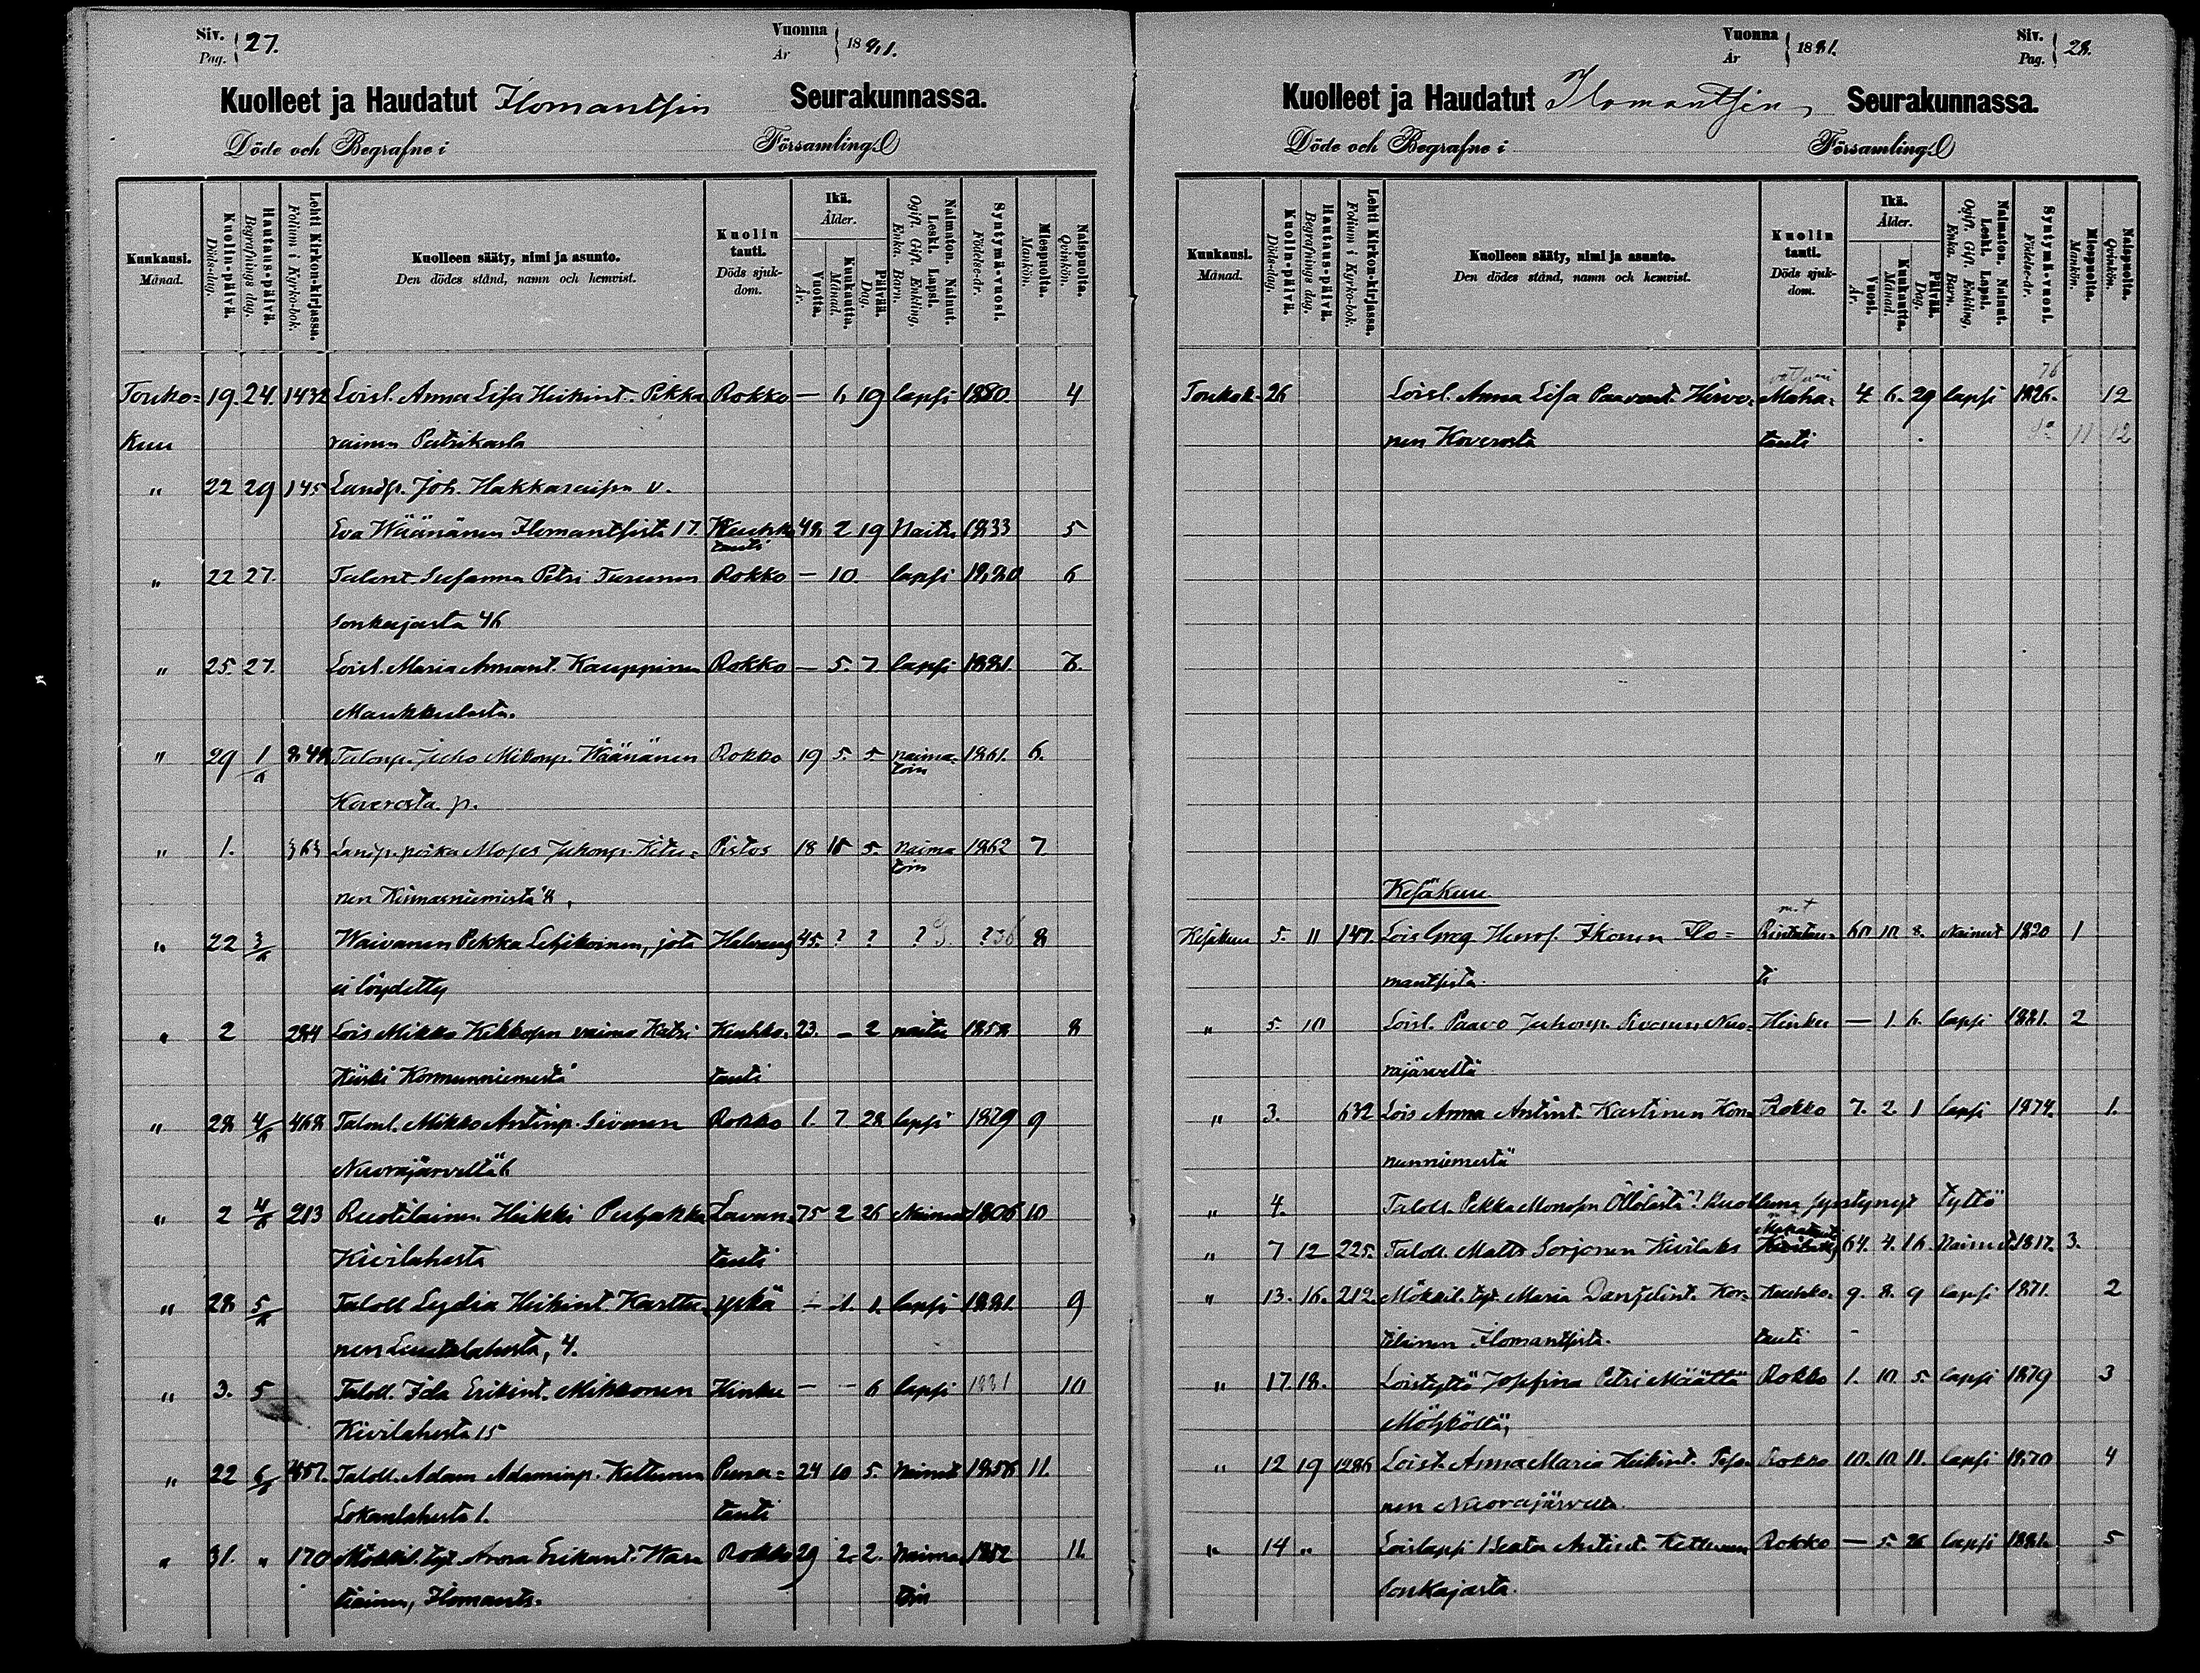 Siv. Pag. 27.
Vuonna År 1881.
Kuolleet ja Haudatut Ilomantsin Seurakunnassa.
Döde och Begrafne i Församling.
Kunkausi. Månad.
Kuolin-päivä. Döds-dag.
Hautaus-päivä. Begrafnings dag.
Lehti Kirkon-kirjassa. Folium i Kyrko-bok.
Kuolleen sääty, nimi ja asunto. Den dödes stånd, namn och hemvist.
Kuolin tauti. Döds sjukdom.
Ikä. Ålder.
Vuotta. År.
Kuukautta. Månad.
Päivää. Dag.
Naimaton. Nainut. Leski. Lapsi. Ogift. Gift. Enkling. Enka. Barn.
Syntymä-vuosi. Födelse-år.
Miespuolta. Mankön.
Naispuolta. Qvinkön.
Touko= 19. 24. 1432 Loisl. Anna Lisa Heikint. Pikka Rokko — 6 19 lapsi 1880. 4
kuu rainen
" 22 29 145 Landp. Joh. Hakkaraisen v.
Eva Wäänänen Ilomantsista 17. Keuhko 48 2 19 Naitu 1833 5
tauti
" 22 27. Talont. Susanna Petri Turunen Rokko — 10. lapsi 1880 6
Sonkajasta 46
" 25. 27. Loisl. Maria Amant. Kauppinen Rokko — 5. 7. lapsi 1881. 7.
Maukkulasta.
" 29 1/6 848 Talonp. Juho Mikonp. Wäänänen Rokko 19 5. 5 naima- 1861. 6.
toin
Koverosta p.
" 1. 363 Landp. poika Moses Juhonp. Pistos 18 5. Naima 1862 7
toin
nen
" 22 3/6 Waivanen Pekka jota 45. ? ? ? ? 36 8
ei löydetty
" 2 284 Lois Mikko Kekkosen vaimo Katri Keuhko- 23. — 2 naitu 1858 8
Kiiski Kormunniemestä tauti
" 28 4/6 468 Talonl. Mikko Antinp. Sivonen Rokko 1. 7 28 lapsi 1879 9
Nuorajärveltä 6
" 2 4/6 213 Ruotilainen Heikki Puhakka Lavan- 75 2 26 Nainut 1806 10
Kivilahesta tauti
" 28 5/6 Taloll. Lydia Heikint. Karttu- yskä — 1. 1. lapsi 1881. 9
nen 4.
" 3. 5 Taloll. Ida Erikint. Mikkonen Hinku — — 6 lapsi 1881 10
Kivilahesta 15
" 22 6/6 457. Taloll. Adam Adaminp. Kettunen Puna= 24 10 5. Nainut 1856 11.
Lokanlahesta 1. tauti
" 31. " 170 Mökkil. tyt. Erikint. Rokko 29 2. 2. Naima 1852 11.
tiainen, Ilomants. toin
Vuonna År 1881.
Siv. Pag. 28.
Kuolleet ja Haudatut Ilomantsin Seurakunnassa.
Döde och Begrafne i Församling.
Kunkausi. Månad.
Kuolin-päivä. Döds-dag.
Hautaus-päivä. Begrafnings dag.
Lehti Kirkon-kirjassa. Folium i Kyrko-bok.
Kuolleen sääty, nimi ja asunto. Den dödes stånd, namn och hemvist.
Kuolin tauti. Döds sjukdom.
Ikä. Ålder.
Vuosi. År.
Kuukautta. Månad.
Päivää. Dag.
Naimaton. Nainut. Leski. Lapsi. Ogift. Gift. Enkling. Enka. Barn.
Syntymä-vuosi. Födelse-år.
Miespuolta. Mankön.
Naispuolta. Qvinkön.
76
Toukok. 26 Loisl. Anna Lisa Paavont. Hirvo- Maha= 4 6. 29 lapsi 1826. 12
nen Koverosta tauti 11 12
Kesäkuu
Kesäkuu 5. 11 147 Lois Greg Ikonen Ilo= Rintatau- 60 10 8. Nainut 1820 1
mantsista ti
" 5. 10 Loisl. Paavo Juhonp. Sivonen Nuo- Hinku — 1. 6. lapsi 1881. 2
rajärveltä
" 3. 632 Lois Anna Antint. Kor- Rokko 7. 2. 1 lapsi 1874. 1.
nunniemestä
" 4. Taloll. Pekka Monosen kuolluna syntynyt tyttö
" 7 12 225. Taloll. Matts Sorjonen Kivilaks 64. 4. 16. Nainut 1817. 3.
" 13. 16. 212. Mökkil. tyt. Maria Kor- Keuhko- 9. 8. 9 lapsi 1871. 2
telainen Ilomantsista. tauti
" 17. 18. Loistyttö Josefina Petri Määttä Rokko 1. 10. 5. lapsi 1879 3
Möhköstä,
" 12 19 1286 Loist. Anna Maria Heikint. Rokko 10. 10 11. lapsi 1870 4
nen Nuorajärvelta.
" 14 " Loislapsi Beata Antint. Kettunen Rokko — 5. 26 lapsi 1881. 5
Sonkajasta.